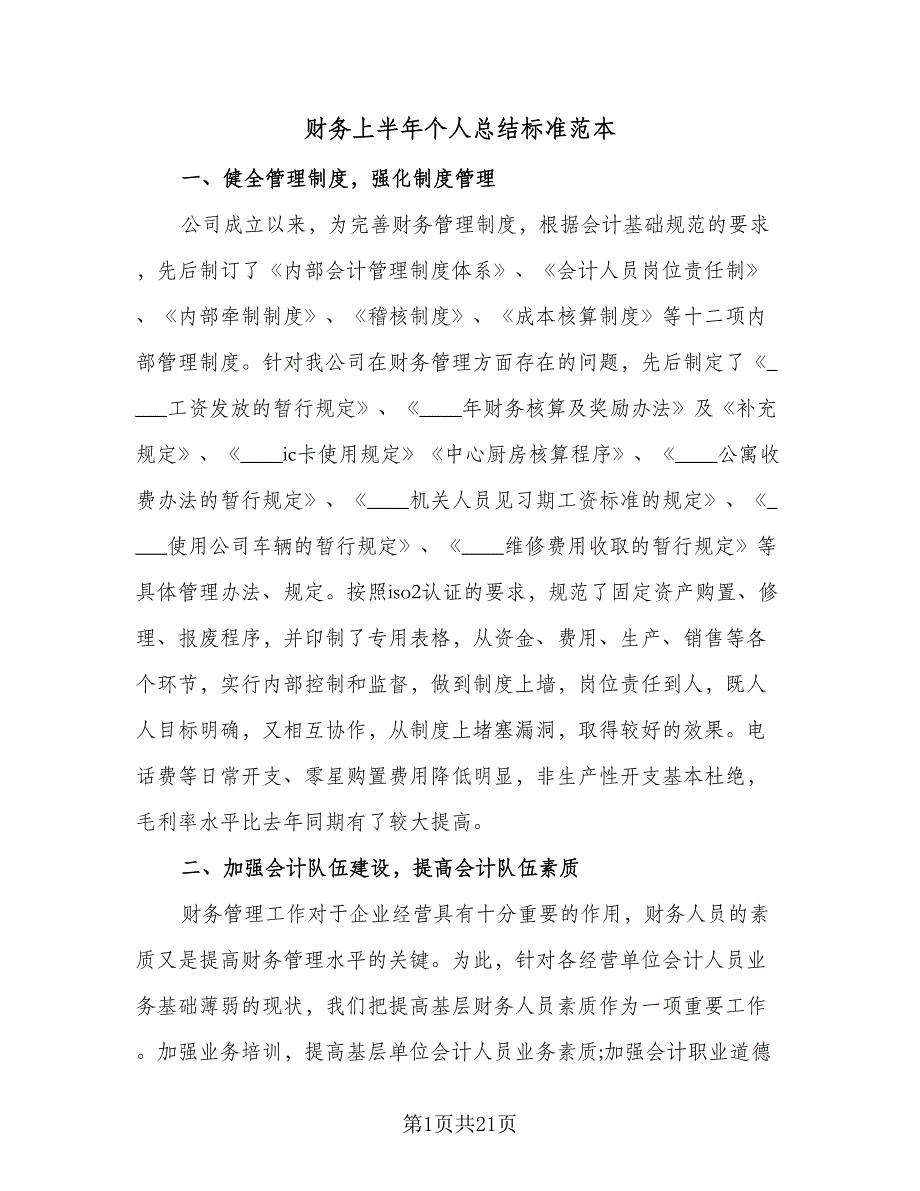 财务上半年个人总结标准范本
一、健全管理制度，强化制度管理
公司成立以来，为完善财务管理制度，根据会计基础规范的要求
，先后制订了《内部会计管理制度体系》、《会计人员岗位责任制》
、《内部牵制制度》、《稽核制度》、《成本核算制度》等十二项内
部管理制度。针对我公司在财务管理方面存在的问题，先后制定了《_
___工资发放的暂行规定》、《____年财务核算及奖励办法》及《补充
规定》、《____ic卡使用规定》《中心厨房核算程序》、《____公寓收
费办法的暂行规定》、《____机关人员见习期工资标准的规定》、《_
___使用公司车辆的暂行规定》、《____维修费用收取的暂行规定》等
具体管理办法、规定。按照iso2认证的要求，规范了固定资产购置、修
理、报废程序，并印制了专用表格，从资金、费用、生产、销售等各
个环节，实行内部控制和监督，做到制度上墙，岗位责任到人，既人
人目标明确，又相互协作，从制度上堵塞漏洞，取得较好的效果。电
话费等日常开支、零星购置费用降低明显，非生产性开支基本杜绝，
毛利率水平比去年同期有了较大提高。
二、加强会计队伍建设，提高会计队伍素质
财务管理工作对于企业经营具有十分重要的作用，财务人员的素
质又是提高财务管理水平的关键。为此，针对各经营单位会计人员业
务基础薄弱的现状，我们把提高基层财务人员素质作为一项重要工作
。加强业务培训，提高基层单位会计人员业务素质;加强会计职业道德
第1页共21页